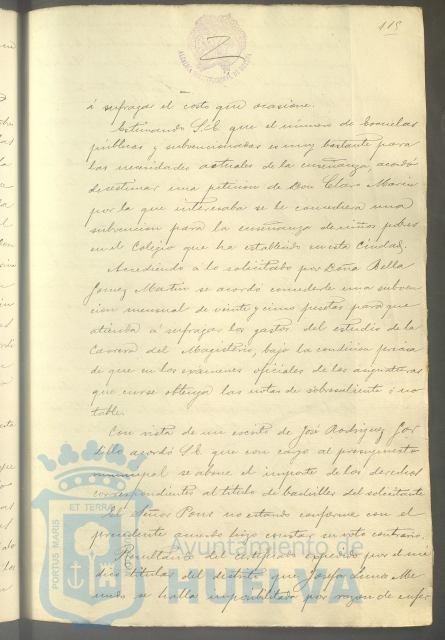 115
á sufragar el costo que ocasione.
Estimando S.E. que el número de Escuelas
públicas y subvencionadas es muy bastante para
las necesidades actuales de la enseñanza acordó
desestimar una peticion de Don Claro Marin
por la que interesaba se le concediera una
subvencion para la enseñanza de niños pobres
en el Colegio que ha establecido en esta Ciudad.
Accediendo á lo solicitado por Doña Bella
Gomez Martin se acordó concederle una subven
cion mensual de veinte y cinco pesetas para que
atienda á sufragar los gastos del estudio de la
Carrera del Magisterio, bajo la condicion precisa
de que en los exámenes oficiales de las asignaturas
que curse obtenga las notas de sobresaliente ó no
table.
Con vista de un escrito de José Rodriguez Gor
dillo acordó S.E. que con cargo al presupuesto
municipal se abone el importe de los derechos
correspondientes al titulo de bachiller del solicitante
El Señor Pons no estando conforme con el
precedente acuerdo hizo constar su voto contrario.
Resultando del certificado expedido por el mé
dico titular del distrito que Josefa
se halla imposibilitada por razon de enfer
PORTUS MARIS
ET TERRA
Ayuntamiento de
HUELVA